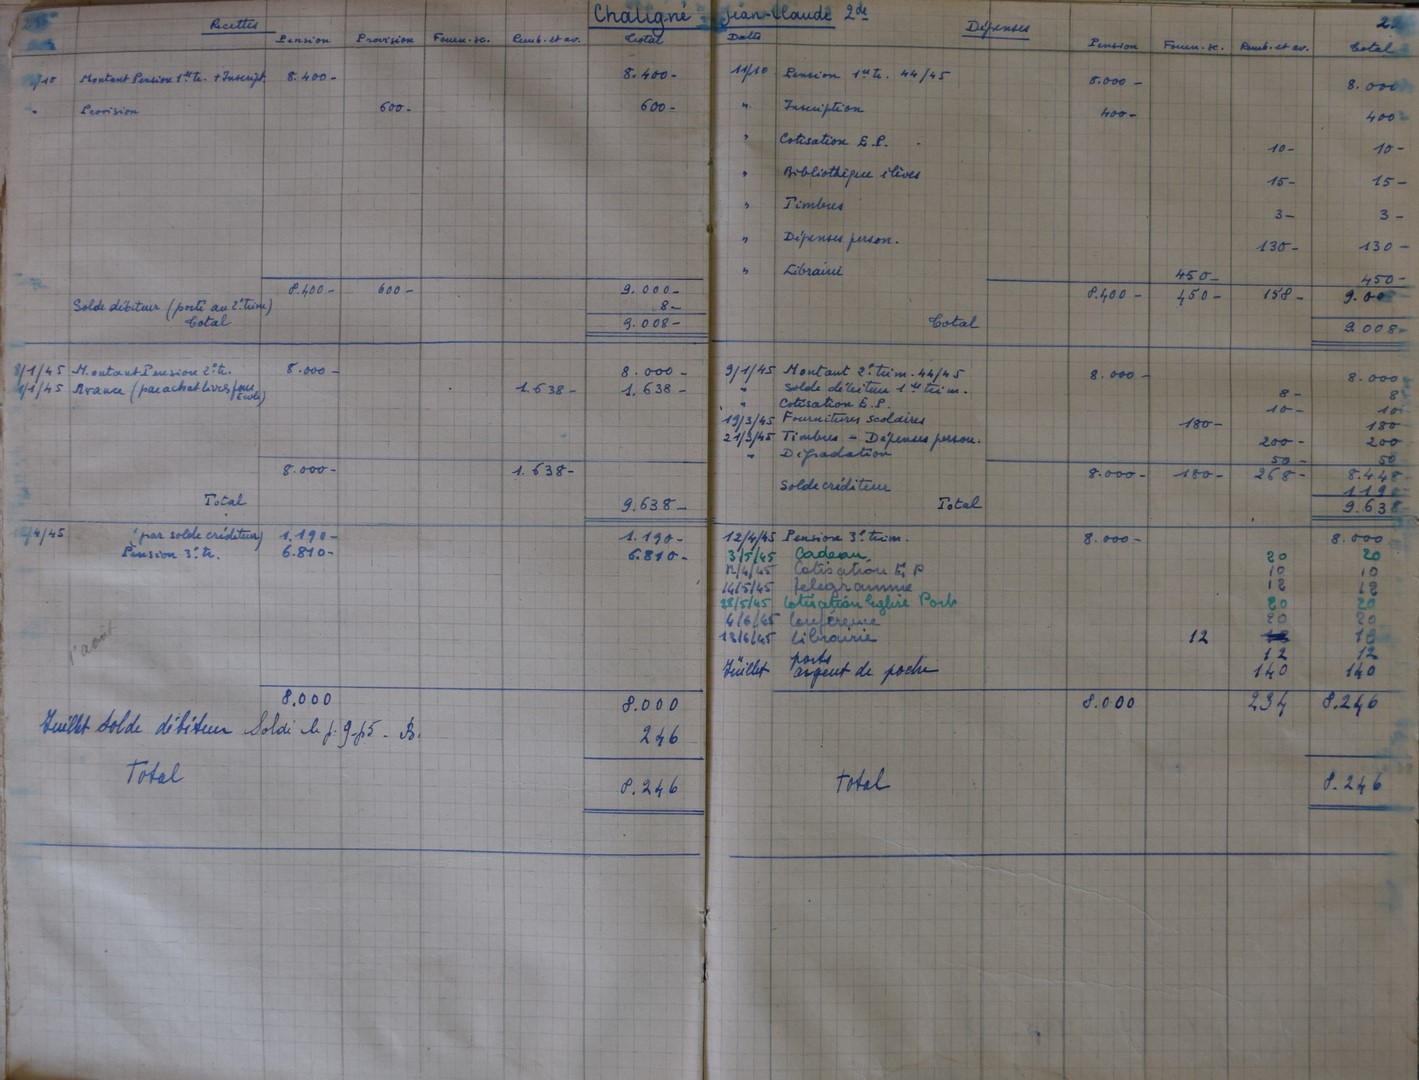 Chaligné Jean-Claude 2de
Recettes
Pension Provision Fourn. sc. Remb. et av. Total
Montant Pension 1er tr. + Inscript. 8.400- 8.400-
" Provision 600- 600-
8.400- 600- 9.000-
Solde débiteur (porté au 2e trim) 8-
Total 9.008-
/1/45 Montant Pension 2e tr. 8.000- 8.000-
/1/45 Avance (par achat livres pour École) 1.638- 1.638-
8.000- 1.638-
Total 9.638-
/4/45 (par solde créditeur) 1.190- 1.190-
Pension 3e tr. 6.810- 6.810-
8.000 8.000
Juillet Solde débiteur Soldé le 246
Total 8.246
Dépenses
Date Pension Fourn. sc. Remb. et av. Total
11/10 Pension 1er tr. 44/45 8.000- 8.000
" Inscription 400- 400-
" Cotisation E.P. 10- 10-
" Bibliothèque élèves 15- 15-
" Timbres 3- 3-
" Dépenses person. 130- 130-
" Librairie 450- 450-
8.400- 450- 158- 9.00
Total 9.008-
9/1/45 Montant 2e trim. 44/45 8.000- 8.000
" Solde débiteur 1er trim. 8- 8
" Cotisation E.P. 10- 10
19/3/45 Fournitures scolaires 180- 180
21/3/45 Timbres - Dépenses person. 200- 200
" Dégradation 50- 50
8.000- 180- 268- 8.448
Solde créditeur 1190
Total 9.638
12/4/45 Pension 3e trim. 8.000- 8.000
3/5/45 Cadeau 20 20
12/4/45 Cotisation E.P 10 10
14/5/45 télégramme 12 12
28/5/45 Cotisation Eglise 20 20
4/6/45 Conférence 20 20
13/6/45 Librairie 12 12
ports 12 12
Juillet argent de poche 140 140
8.000 234 8.246
Total 8.246